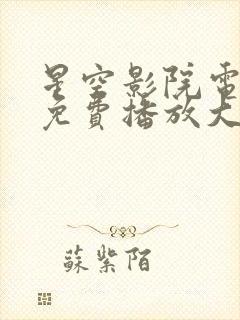 星空影院電
免費播放大
蘇紫陌